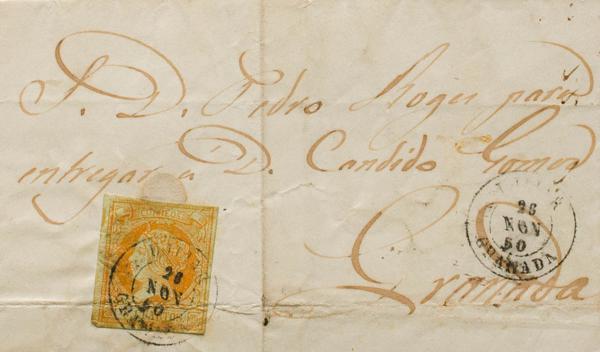 S. D. Pedro Roger para
entregar a D. Candido Gomez
Granada
26
NOV
60
GRANADA
CORREOS
26
NOV
60